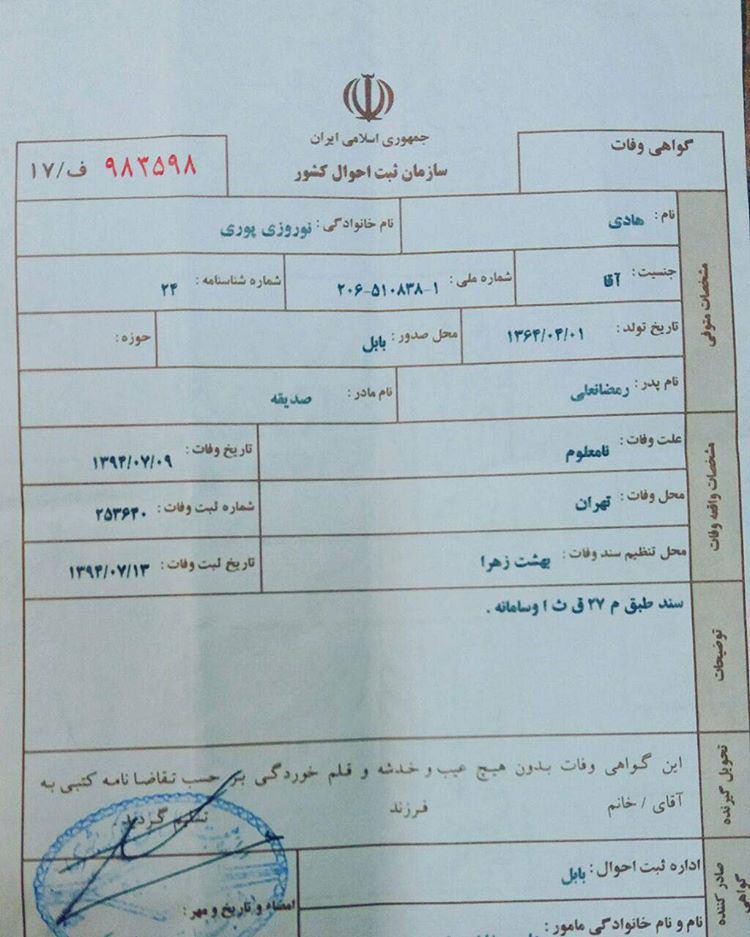 جمهوری اسلامی ایران
سازمان ثبت احوال کشور
گواهی وفات
۹۸۳۵۹۸ ف/۱۷
مشخصات متوفی
نام: هادی
نام خانوادگی: نوروزی پوری
جنسیت: آقا
شماره ملی: ۲۰۶-۵۱۰۸۳۸-۱
شماره شناسنامه: ۲۴
تاریخ تولد: ۱۳۶۴/۰۴/۰۱
محل صدور: بابل
حوزه:
نام پدر: رمضانعلی
نام مادر: صدیقه
مشخصات واقعه وفات
علت وفات: نامعلوم
تاریخ وفات: ۱۳۹۴/۰۷/۰۹
محل وفات: تهران
شماره ثبت وفات: ۲۵۳۶۴۰
محل تنظیم سند وفات: بهشت زهرا
تاریخ ثبت وفات: ۱۳۹۴/۰۷/۱۳
توضیحات
سند طبق م ۲۷ ق ث ا وسامانه .
تحویل گیرنده
این گواهی وفات بدون هیچ عیب و خدشه و قلم خوردگی بر حسب تقاضا نامه کتبی به
آقای / خانم فرزند تسلیم گردید.
صادر کننده گواهی
اداره ثبت احوال: بابل
امضاء و تاریخ و مهر:
نام و نام خانوادگی مامور: